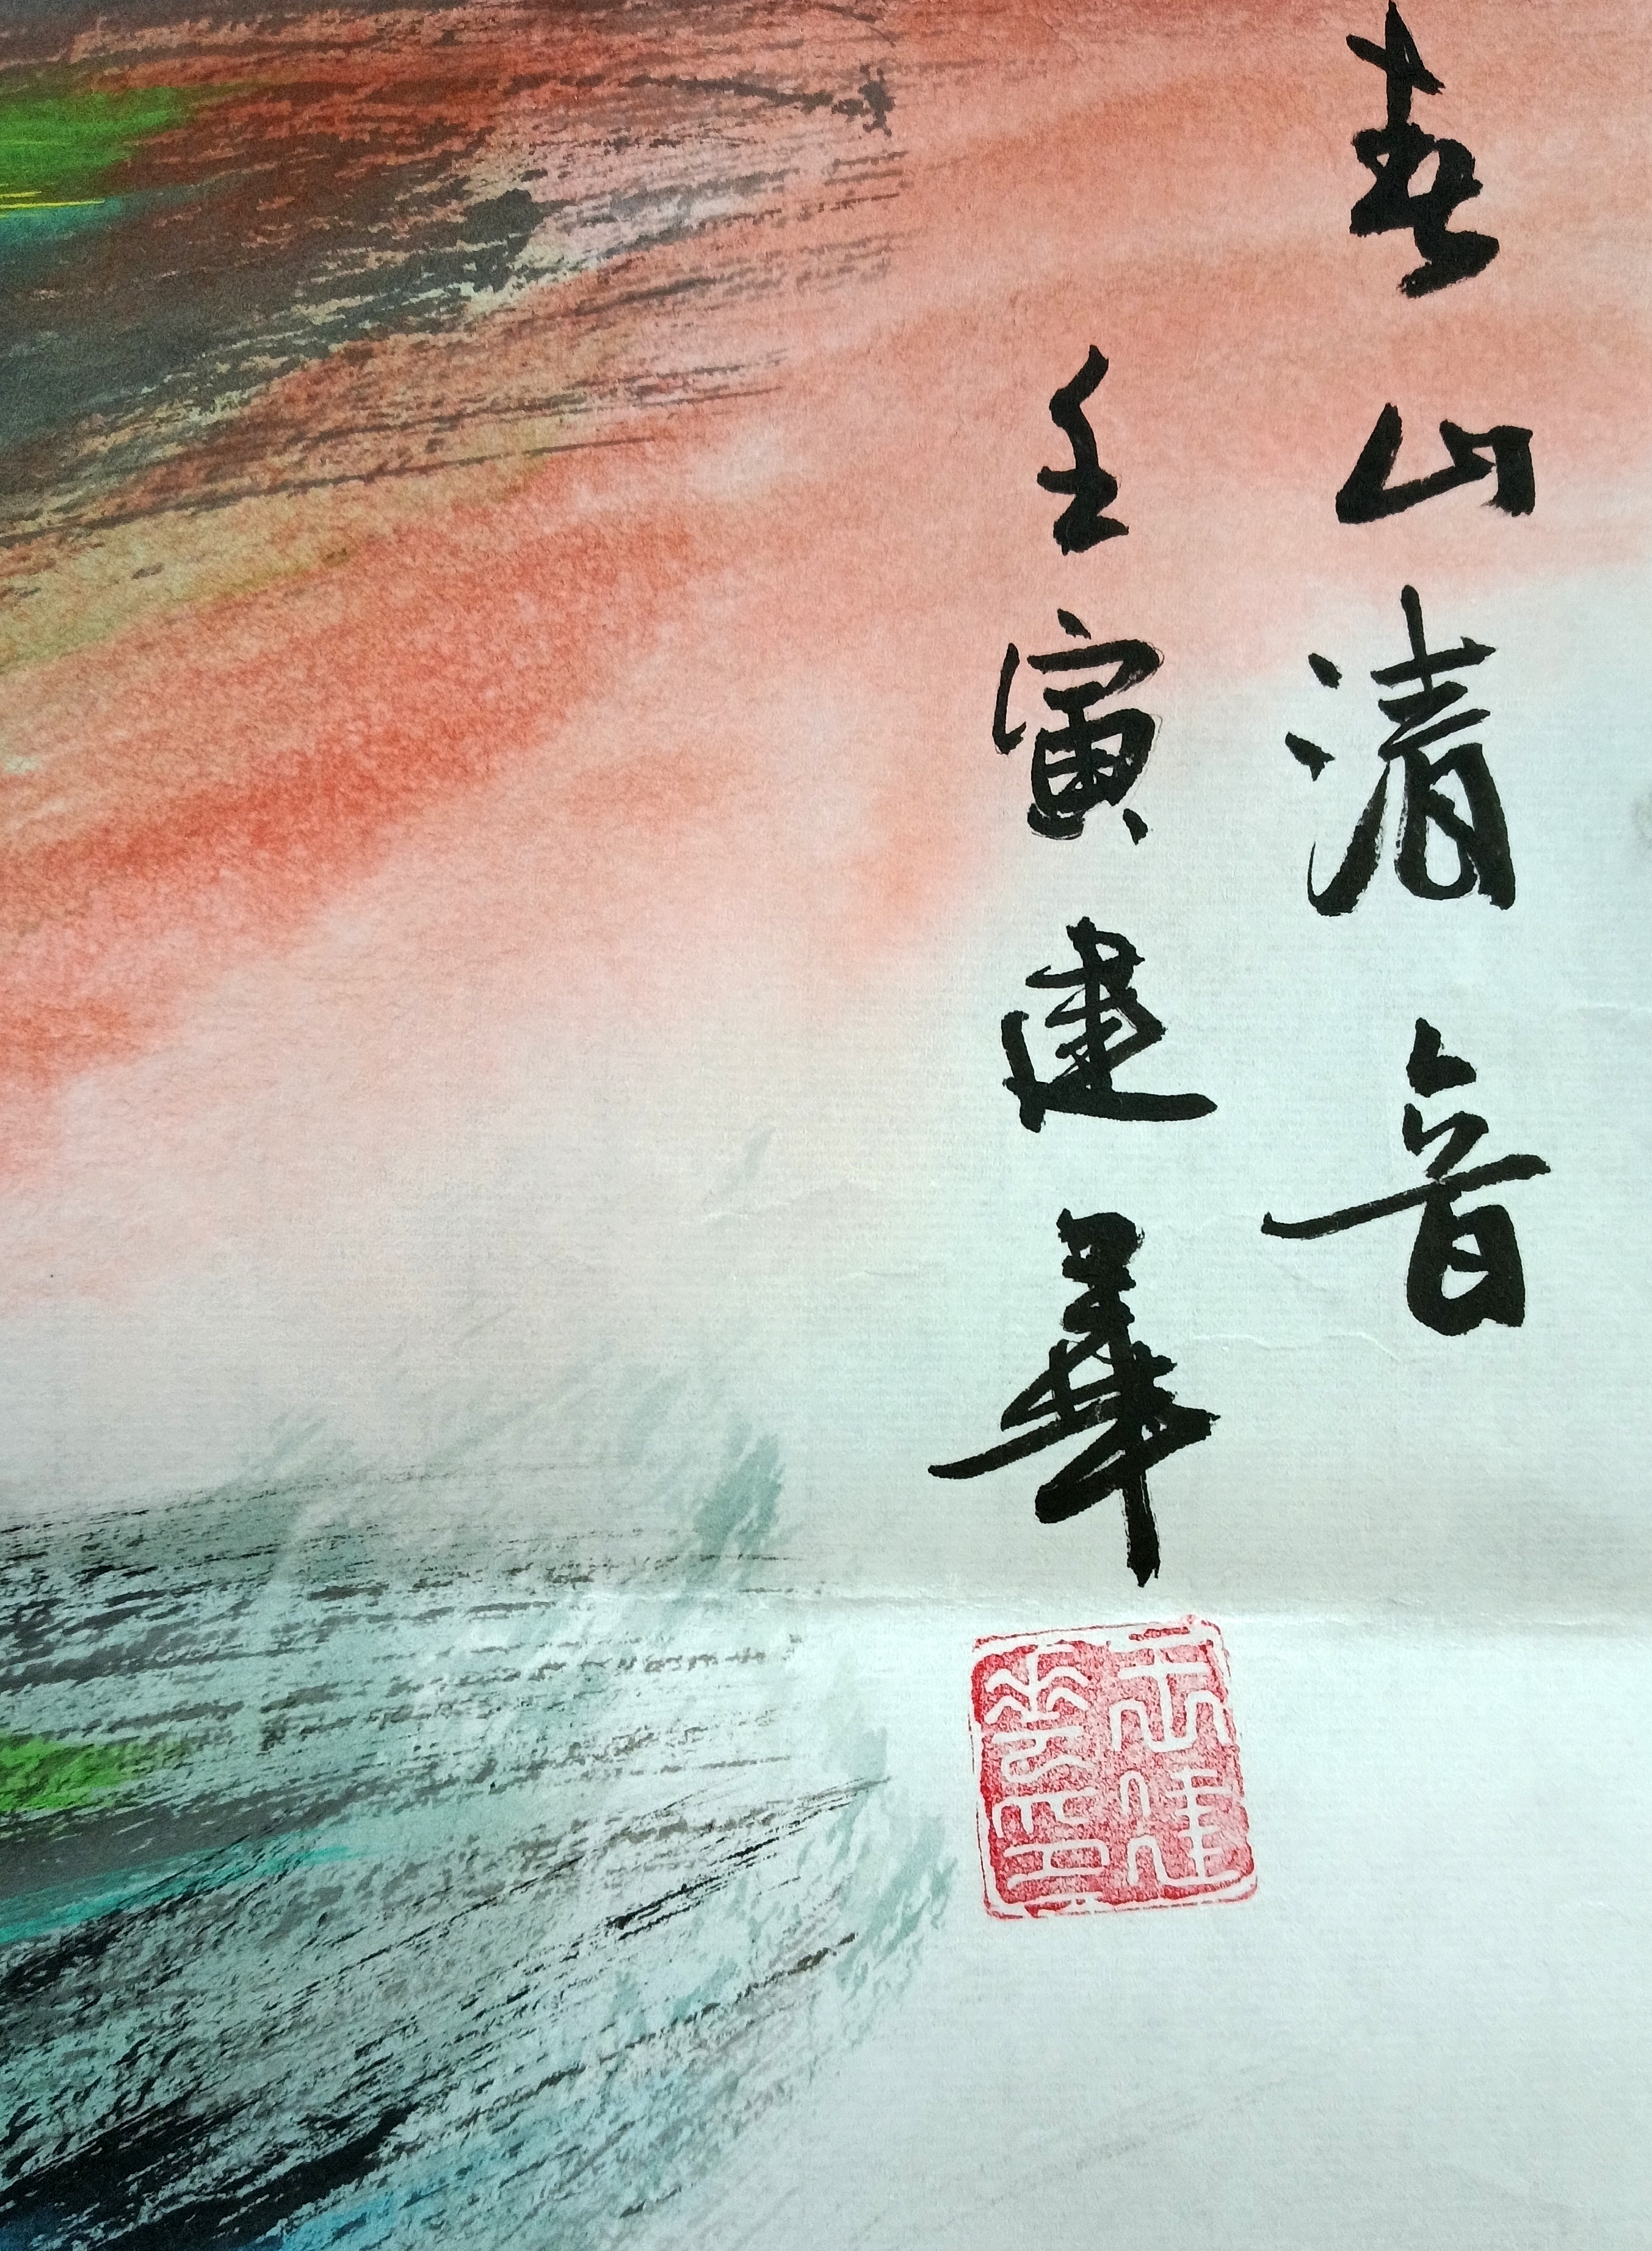 春山清音
壬寅建華